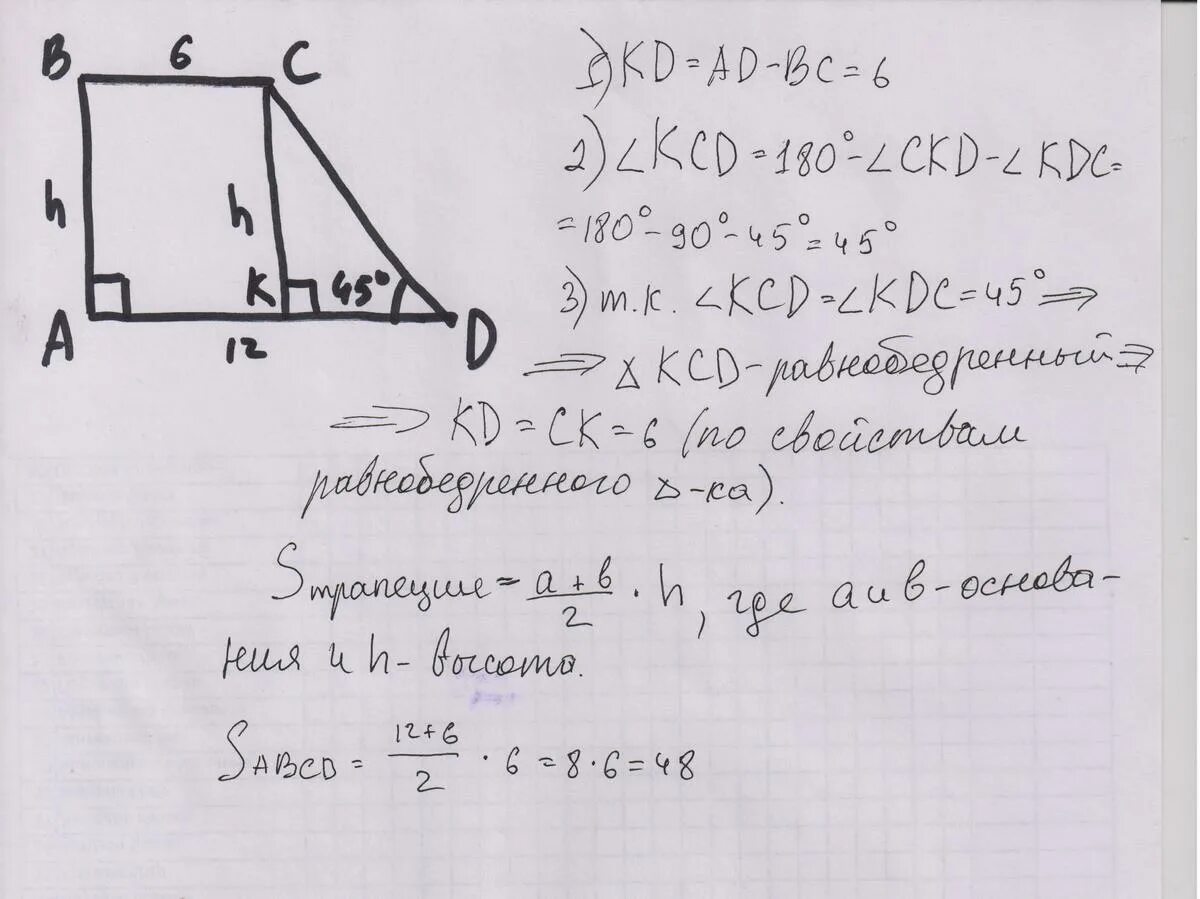 B 6 C
h h
K 45°
A 12 D
1) KD = AD - BC = 6
2) ∠KCD = 180° - ∠CKD - ∠KDC =
= 180° - 90° - 45° = 45°
3) т.к. ∠KCD = ∠KDC = 45° ⟹
⟹ Δ KCD - равнобедренный ⟹
⟹ KD = CK = 6 (по свойствам
равнобедренного Δ-ка).
Sтрапеции = a + b / 2 · h, где a и b - основа-
ния и h - высота.
SABCD = 12+6 / 2 · 6 = 8 · 6 = 48